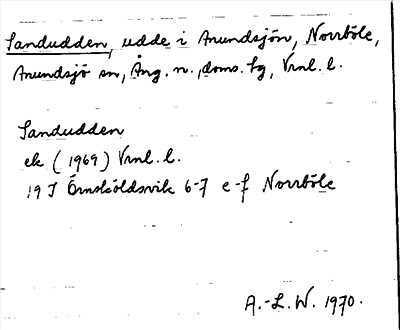 Sandudden, udde i Anundsjön, Norrböle,
Anundsjö sn, Ång. n., doms. fg, Vrnl. l.
Sandudden
ek (1969) Vrnl. l.
19 J Örnsköldsvik 6-7 e-f Norrböle
A.-L. W. 1970.